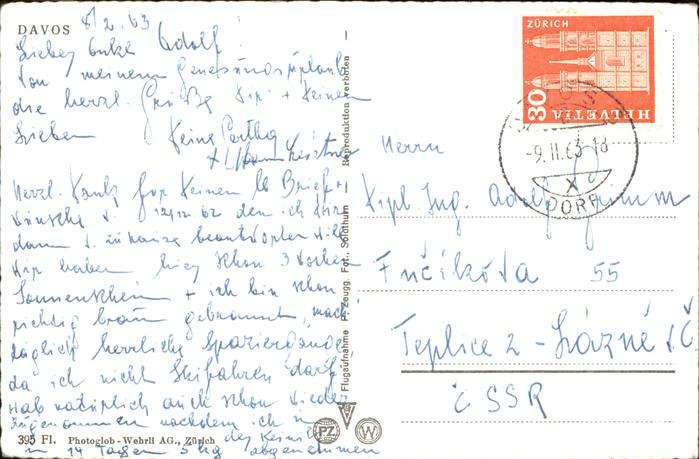 DAVOS 8/2.63
Lieber Onkel Adolf!
Von meinem Genesungsurlaub
die herzl. Grüße Dir + Deinen
Lieben
Herzl. Dank für Deinen lb Brief
v. 12/12 62 den ich Dir
dann v. zuhause
Wir haben hier schon 3 Wochen
Sonnenschein + ich bin schon
richtig braun gebrannt, mache
täglich herrliche Spaziergänge
da ich nicht Skifahren darf,
hab natürlich auch schon wieder
zugenommen nachdem ich in
der
in 14 Tagen 5 kg abgenommen
395 Fl. Photoglob - Wehrli AG., Zürich
Flugaufnahme P. Zeugg Fot., Solothurn Reproduktion verboten
PZ W
ZÜRICH
30
HELVETIA
-9.II.63-18
X
DORF
Herrn
Dipl. Ing. Adolf Grimm
Fučíkova 55
Teplice 2 - Lázně i. Č
ČSSR